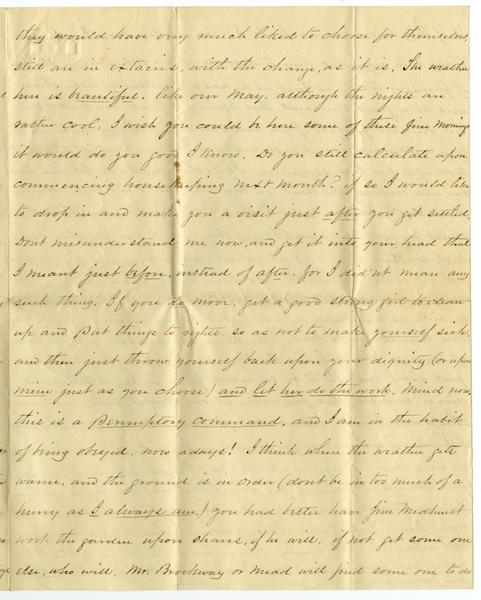 they would have very much liked to choose for themselves,
still are in extacies, with the change, as it is. The weather
here is beautiful. like our May, although the nights are
rather cool, I wish you could be here some of these fine mornings
it would do you good I know. Do you still calculate upon
commencing housekeeping next month? if so I would like
to drop in and make you a visit just after you get settled.
Dont misunderstand me now, and get it into your head that
I meant just before, instead of after, for I did'nt mean any
such thing. If you do move, get a good strong girl to clean
up and put things to rights, so as not to make yourself sick,
and then just throw yourself back upon your dignity (or upon
mine just as you choose) and let her do the work. Mind now,
this is a peremptory command, and I am in the habit
of being obeyed, now adays! I think when the weather gets
warm, and the ground is in order (dont be in too much of a
hurry as I always am,) you had better have Jim Medhurst
work the garden upon shares, if he will, if not get some one
else, who will, Mr. Brockway or Mead will find some one to do